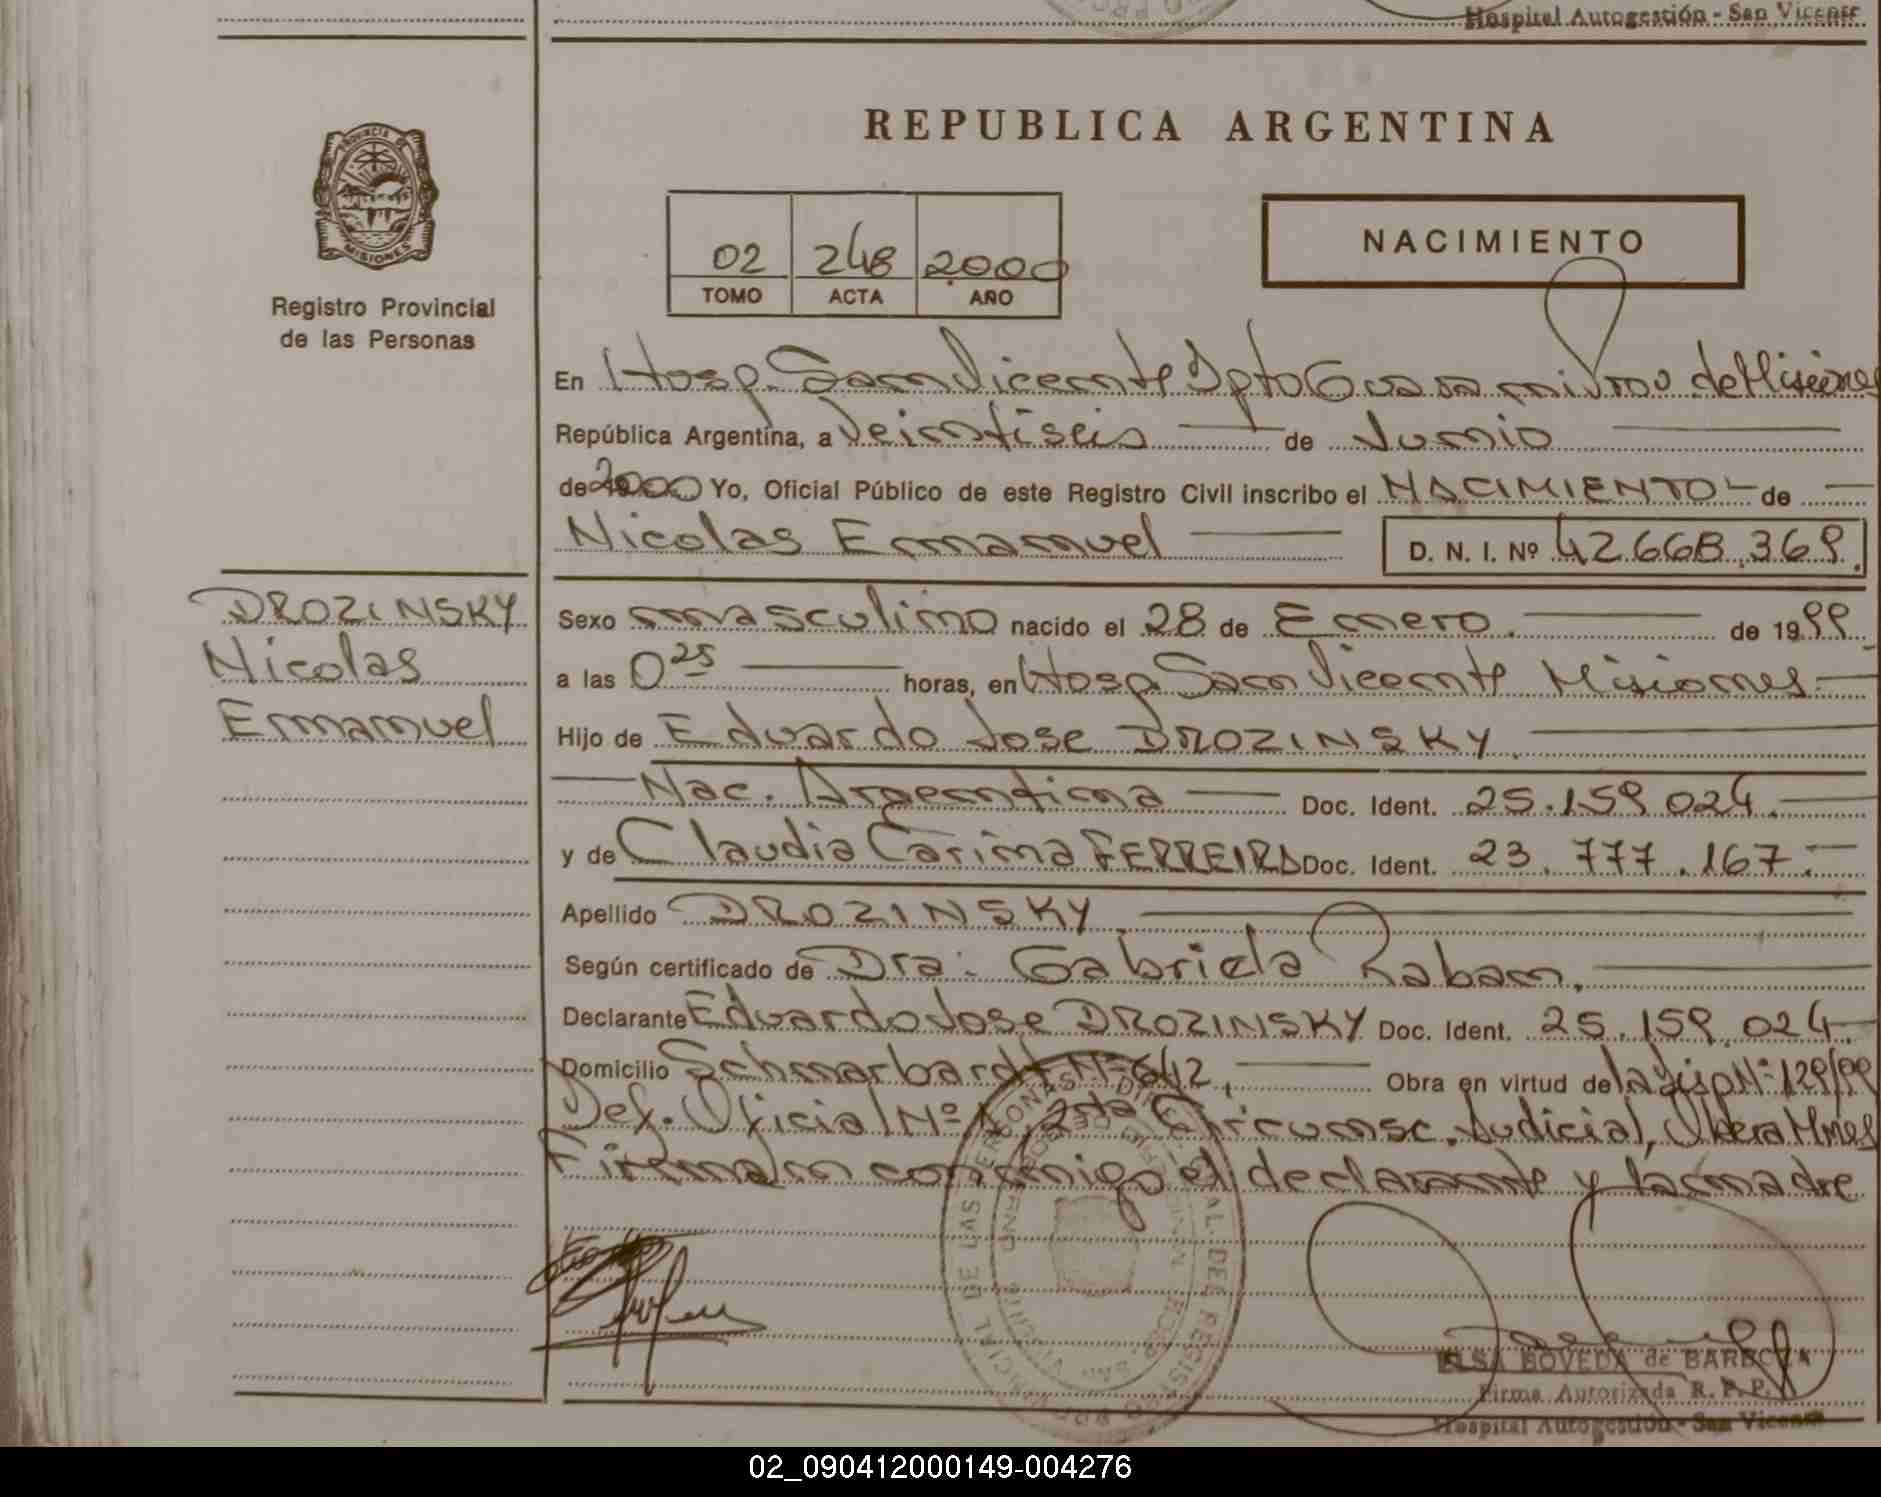 Hospital Autogestión - San Vicente
REPUBLICA ARGENTINA
PROVINCIA DE
MISIONES
Registro Provincial
de las Personas
02 248 2000
TOMO ACTA AÑO
NACIMIENTO
En Hosp. San Vicente Dpto Guarani Prov. de Misiones
República Argentina, a Veintiseis de Junio
de 2000 Yo, Oficial Público de este Registro Civil inscribo el NACIMIENTO de
Nicolas Emanuel D. N. I. Nº 42668.369.
DROZINSKY
Nicolas
Emanuel
Sexo masculino nacido el 28 de Enero. de 1999
a las 0 25 horas, en Hosp San Vicente Misiones
Hijo de Eduardo Jose DROZINSKY.
Nac. Argentina Doc. Ident. 25.159.024.
y de Claudia Carina FERREIRA Doc. Ident. 23.777.167.
Apellido DROZINSKY
Según certificado de Dra. Gabriela Raban.
Declarante Eduardo Jose DROZINSKY Doc. Ident. 25.159.024
Domicilio Nº 642, Obra en virtud de la Disp Nº 129/99
Def. Oficial Nº 2da Circunsc. Judicial, Obera Mnes
Firman conmigo el declarante y la madre
ELSA BOVEDA de BARBOZA
Firma Autorizada R. P. P.
Hospital Autogestión - San Vicente
02_090412000149-004276